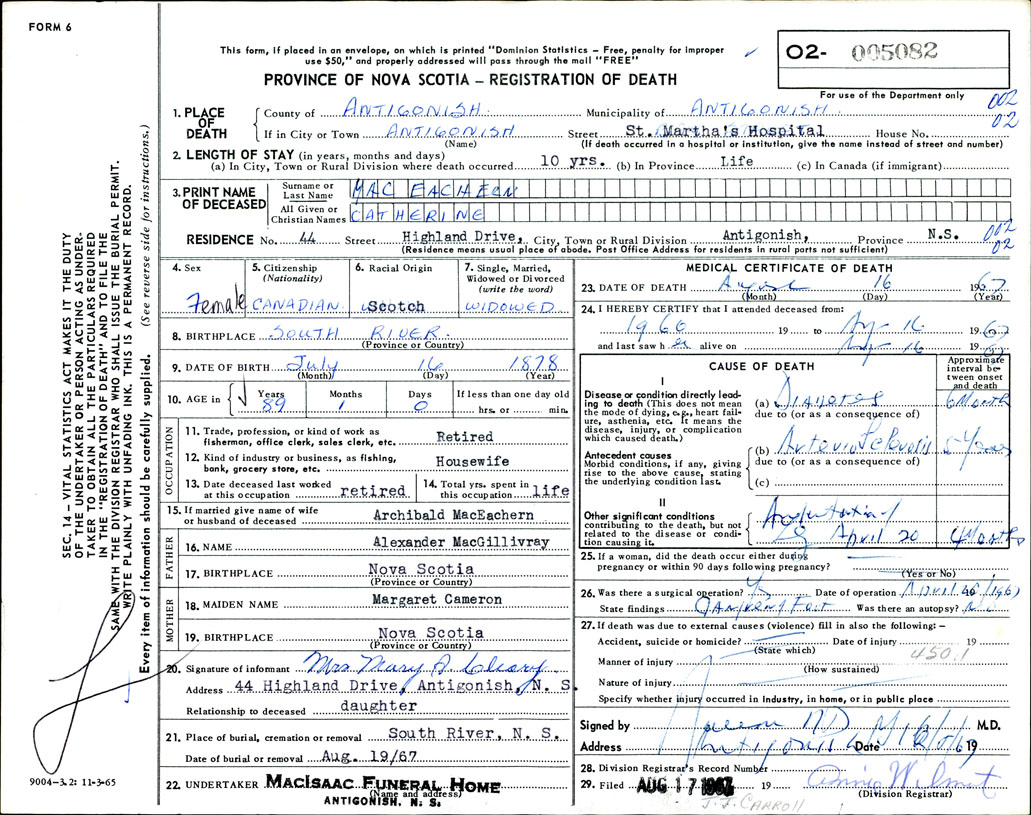 FORM 6
This form, if placed in an envelope, on which is printed "Dominion Statistics – Free, penalty for improper
use $50," and properly addressed will pass through the mail "FREE"
O2- 005082
PROVINCE OF NOVA SCOTIA – REGISTRATION OF DEATH
For use of the Department only
002
02
1. PLACE OF DEATH
County of ANTIGONISH Municipality of ANTIGONISH
If in City or Town ANTIGONISH Street St. Martha's Hospital House No.
(Name) (If death occurred in a hospital or institution, give the name instead of street and number)
2. LENGTH OF STAY (in years, months and days)
(a) In City, Town or Rural Division where death occurred 10 yrs. (b) In Province Life (c) In Canada (if immigrant)
3. PRINT NAME OF DECEASED
Surname or Last Name MAC EACHERN
All Given or Christian Names CATHERINE
RESIDENCE No. 44 Street Highland Drive, City, Town or Rural Division Antigonish, Province N.S.
002
02
(Residence means usual place of abode. Post Office Address for residents in rural parts not sufficient)
4. Sex Female
5. Citizenship (Nationality) CANADIAN
6. Racial Origin Scotch
7. Single, Married, Widowed or Divorced (write the word) WIDOWED
8. BIRTHPLACE SOUTH RIVER
(Province or Country)
9. DATE OF BIRTH July 16 1878
(Month) (Day) (Year)
10. AGE in Years Months Days If less than one day old
89 1 0 hrs. or min.
OCCUPATION
11. Trade, profession or kind of work as fisherman, office clerk, sales clerk, etc. Retired
12. Kind of industry or business, as fishing, bank, grocery store, etc. Housewife
13. Date deceased last worked at this occupation retired
14. Total yrs. spent in this occupation life
15. If married give name of wife or husband of deceased Archibald MacEachern
FATHER
16. NAME Alexander MacGillivray
17. BIRTHPLACE Nova Scotia
(Province or Country)
MOTHER
18. MAIDEN NAME Margaret Cameron
19. BIRTHPLACE Nova Scotia
(Province or Country)
20. Signature of informant Mrs Mary A
Address 44 Highland Drive, Antigonish, N. S.
Relationship to deceased daughter
21. Place of burial, cremation or removal South River, N. S.
Date of burial or removal Aug. 19/67
22. UNDERTAKER MACISAAC FUNERAL HOME
(Name and address)
ANTIGONISH, N. S.
MEDICAL CERTIFICATE OF DEATH
23. DATE OF DEATH August 16 1967
(Month) (Day) (Year)
24. I HEREBY CERTIFY that I attended deceased from:
1966 19 to Aug 16 1967
and last saw her alive on Aug 16 1967
CAUSE OF DEATH
Approximate interval between onset and death
I
Disease or condition directly leading to death (This does not mean the mode of dying, e.g., heart failure, asthenia, etc. It means the disease, injury, or complication which caused death.)
(a) 6 Months
due to (or as a consequence of)
Antecedent causes
Morbid conditions, if any, giving rise to the above cause, stating the underlying condition last.
(b) Years
due to (or as a consequence of)
(c)
II
Other significant conditions
contributing to the death, but not related to the disease or condition causing it.
Amputation
April 20 4 Months
25. If a woman, did the death occur either during
pregnancy or within 90 days following pregnancy?
(Yes or No)
26. Was there a surgical operation? Date of operation April 1967
State findings Foot Was there an autopsy? No
27. If death was due to external causes (violence) fill in also the following: –
Accident, suicide or homicide? Date of injury 19
(State which) 450.1
Manner of injury
(How sustained)
Nature of injury
Specify whether injury occurred in Industry, in home, or in public place
Signed by M.D.
Address Antigonish Date 19
28. Division Registrar's Record Number
29. Filed AUG 17 1967 19
(Division Registrar)
J. J. CARROLL
SEC. 14 – VITAL STATISTICS ACT MAKES IT THE DUTY
OF THE UNDERTAKER OR PERSON ACTING AS UNDER-
TAKER TO OBTAIN ALL THE PARTICULARS REQUIRED
IN THE "REGISTRATION OF DEATH" AND TO FILE THE
SAME WITH THE DIVISION REGISTRAR WHO SHALL ISSUE THE BURIAL PERMIT.
WRITE PLAINLY WITH UNFADING INK. THIS IS A PERMANENT RECORD.
Every item of information should be carefully supplied. (See reverse side for instructions.)
9004-3.2: 11-3-65